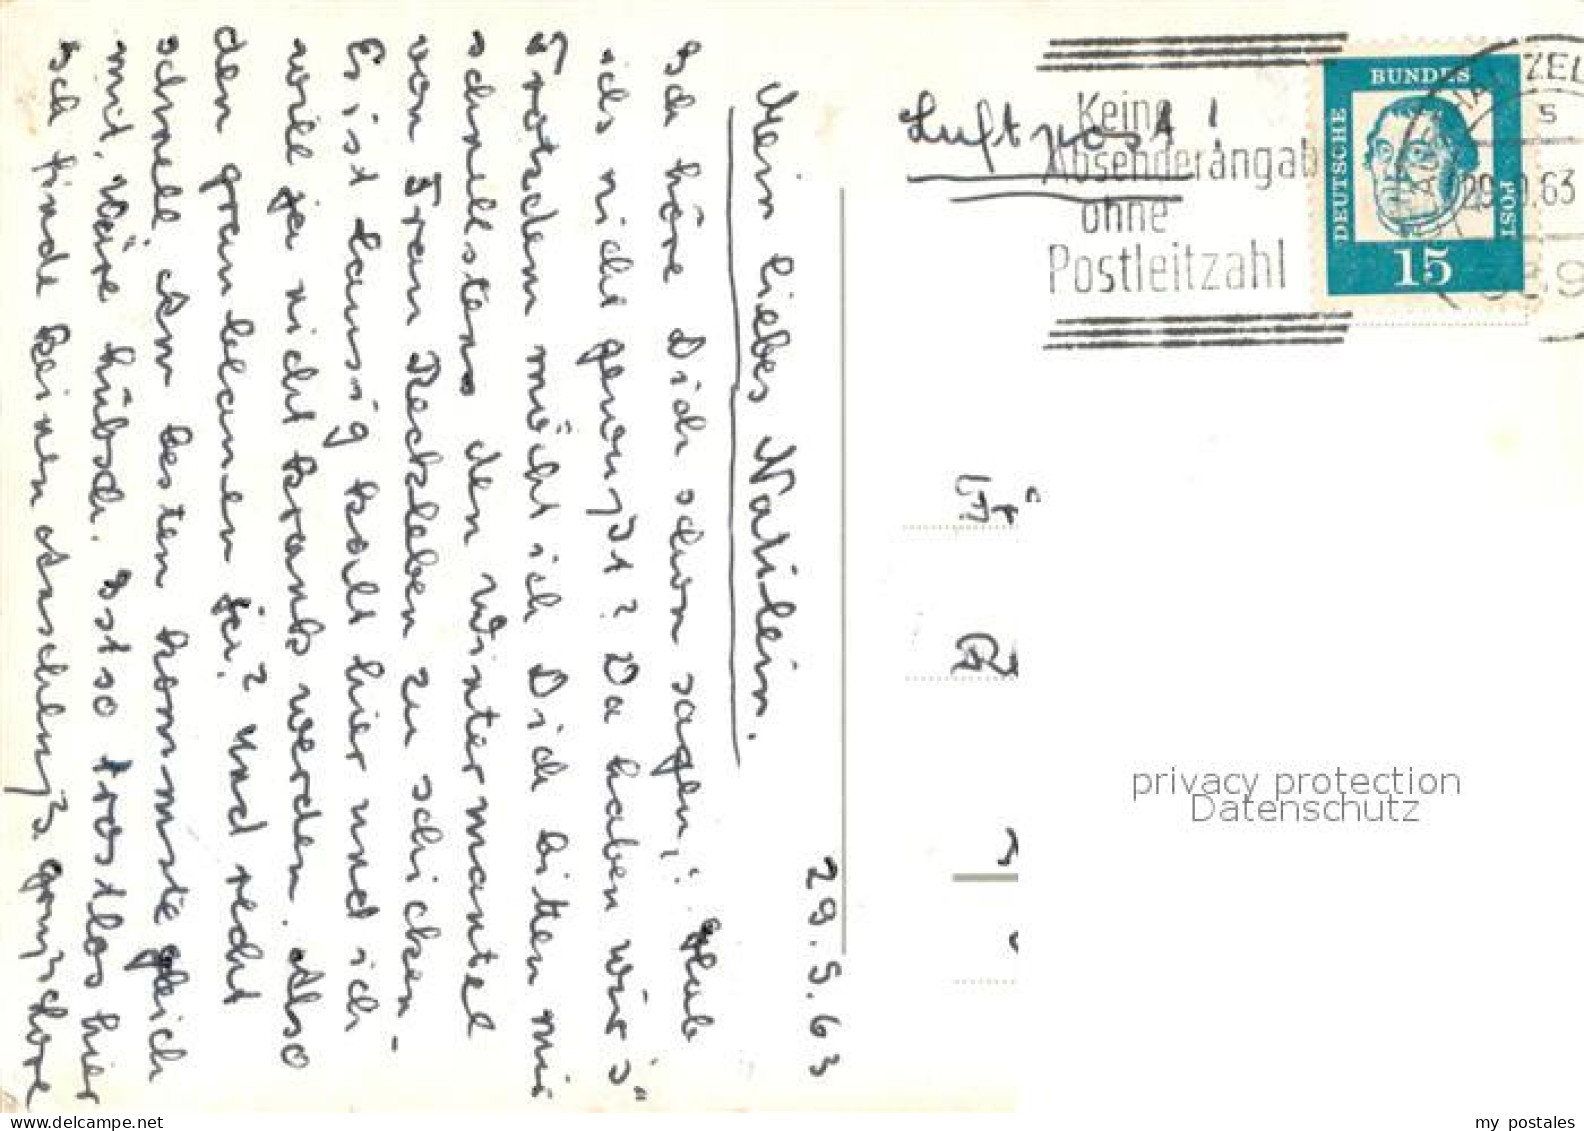 29.5.63
Mein liebes Natilein.
Ich höre Dich schon sagen,: „Hab
ichs nicht gewußt? Da haben wir's"
Trotzdem möcht ich Dich bitten mir
schnellstens den Wintermantel
von Frau Recksleben zu schicken -
Es ist lausig kalt hier und ich
will ja nicht krank werden. Also
den graublauen ja? Und recht
schnell. Am besten kommste gleich
mit. Wäre hübsch. Ist so trostlos hier
Ich finde keinen Anschluß. ganz
Luftpost!
Keine
Absenderangabe
ohne
Postleitzahl
ZEL
s
63
DEUTSCHE
BUNDES
POST
15
privacy protection
Datenschutz
my postales